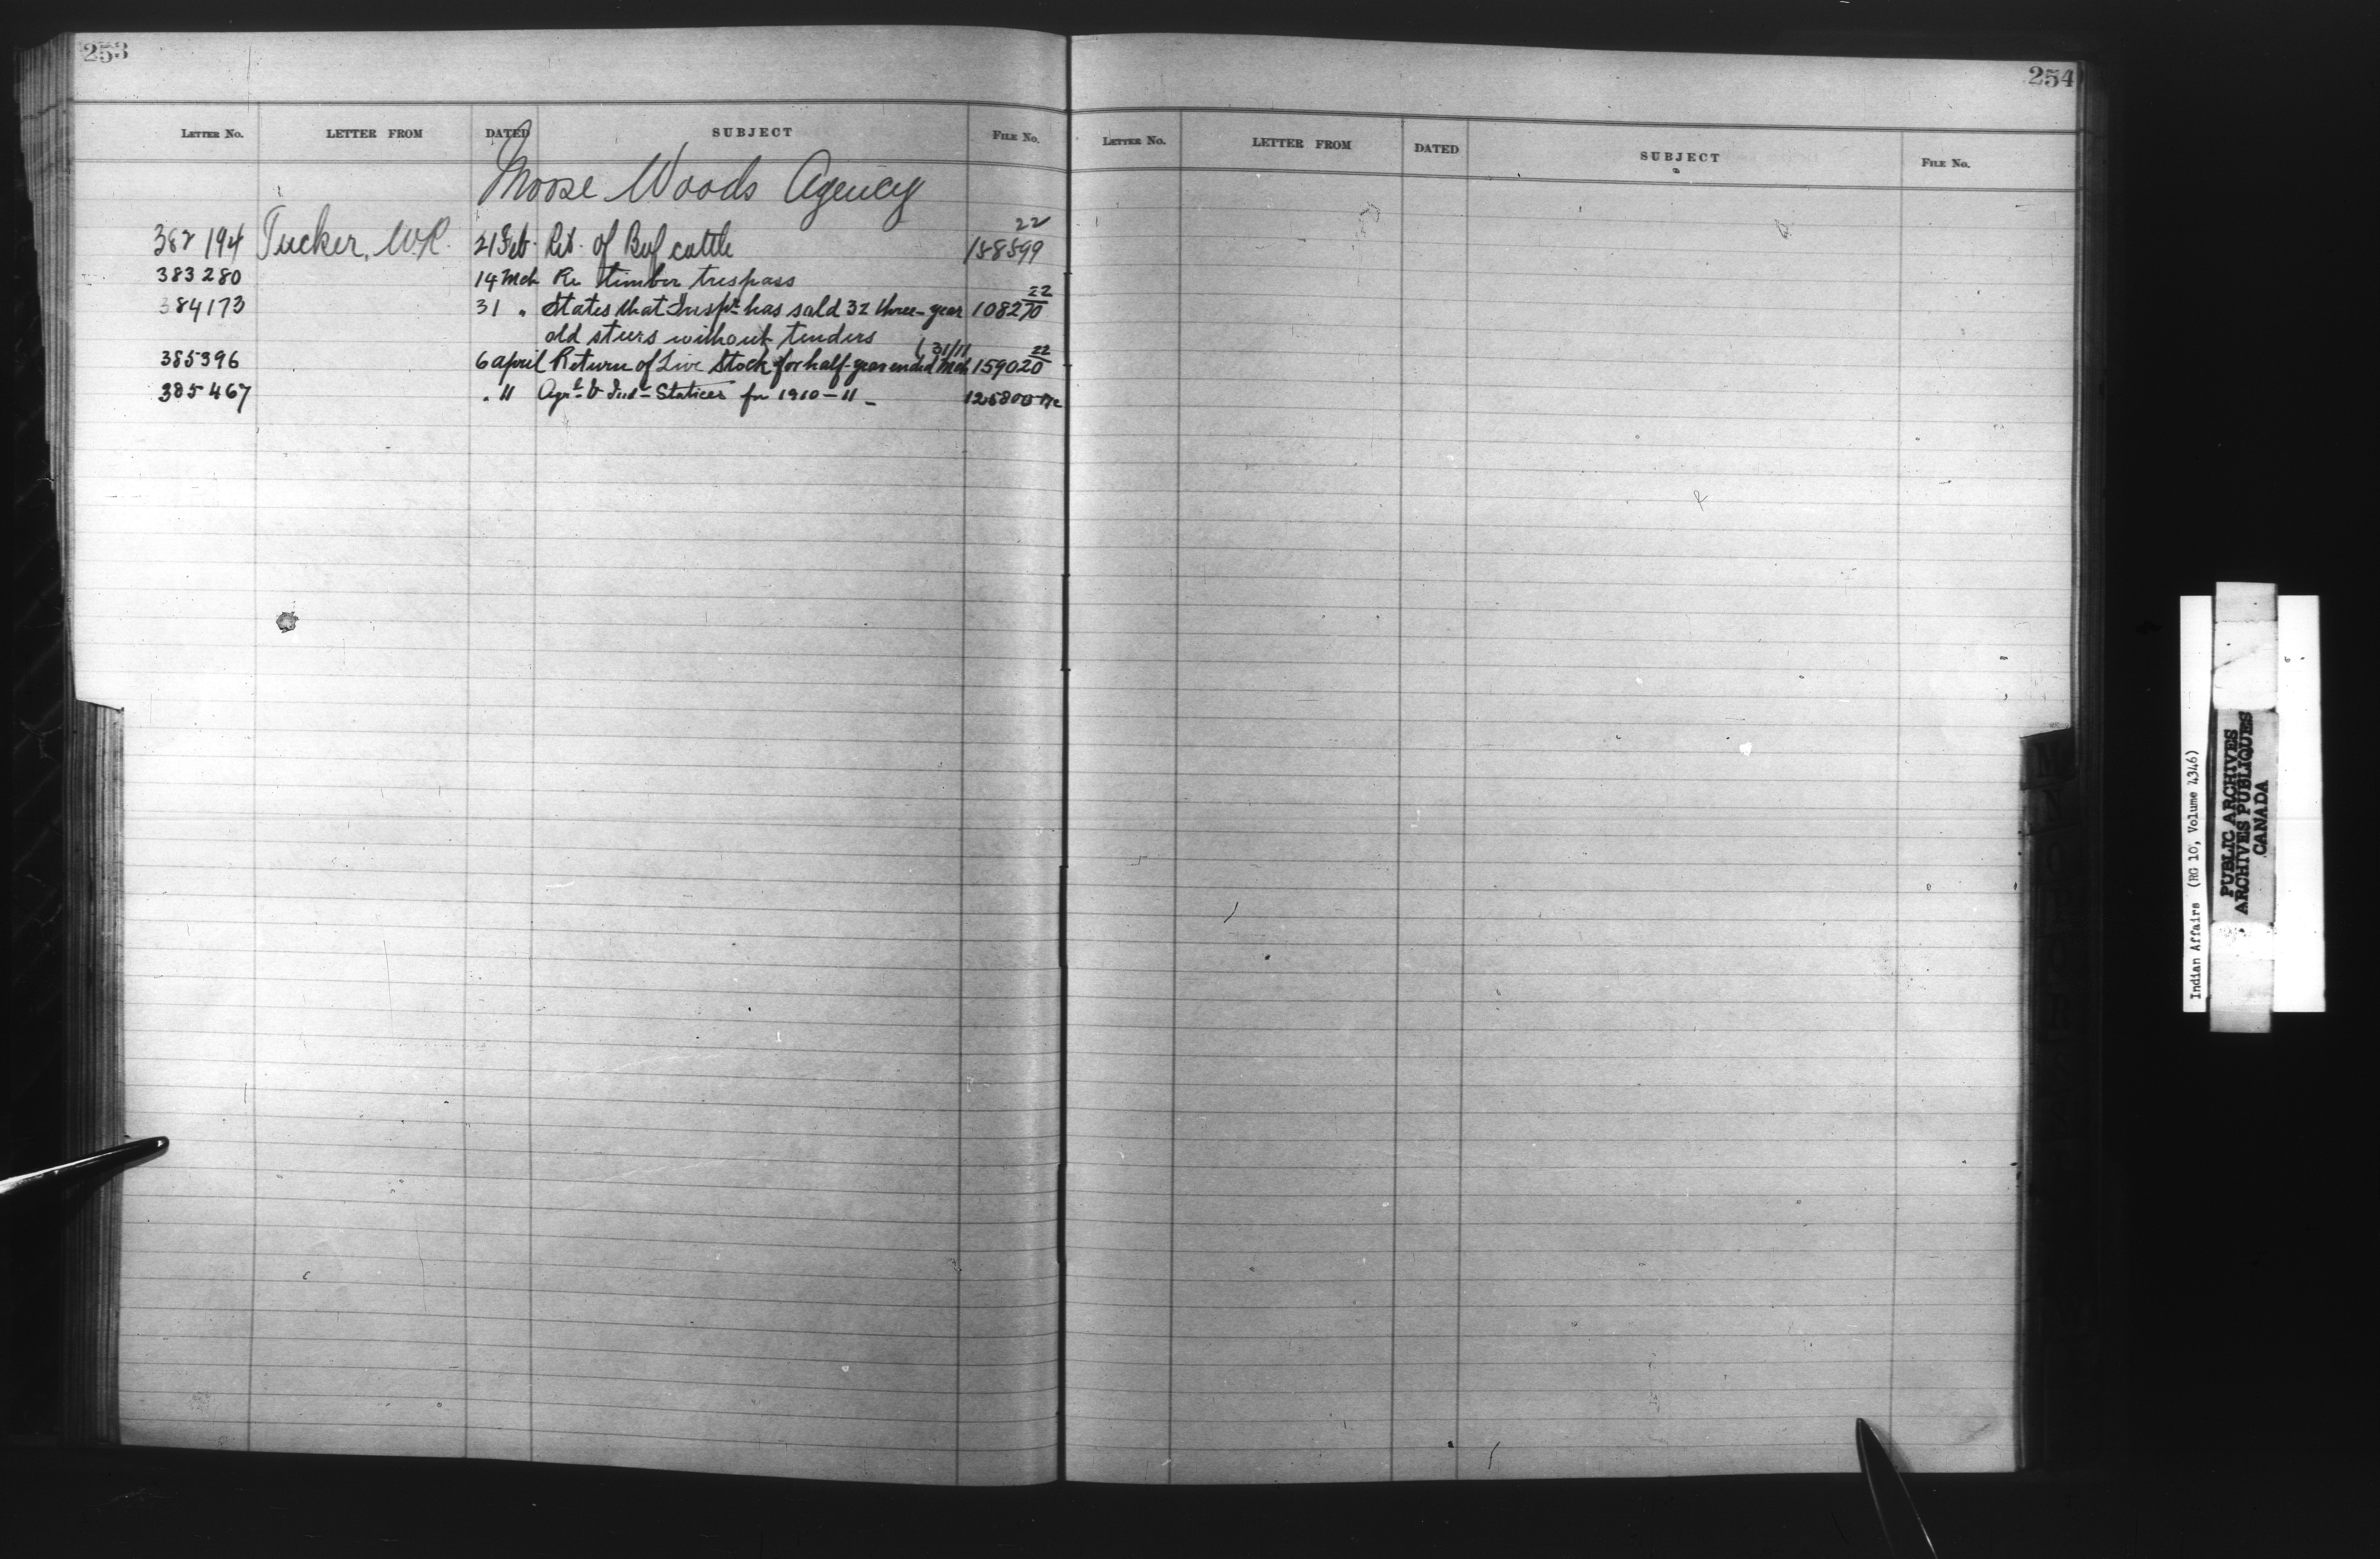 253
LETTER NO. LETTER FROM DATED SUBJECT FILE NO.
Moose Woods Agency
382194 Tucker, W.R. 21 Feb. Ret. of Beef cattle 22 158599
383280 14 Mch Re timber trespass
384173 31 " States that Inspr has sold 32 three-year 22 108270
old steers without tenders
385396 6 April Return of Live Stock for half-year ended Mch 31/11 22 159020
385467 " 11 Agrl & Indl Statices for 1910-11
254
LETTER NO. LETTER FROM DATED SUBJECT FILE NO.
Indian Affairs (RG 10, Volume 4346)
PUBLIC ARCHIVES
ARCHIVES PUBLIQUES
CANADA